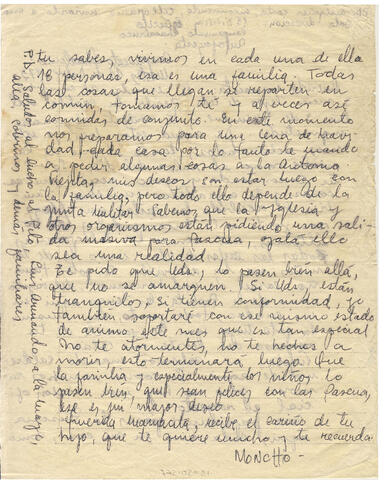 tu sabes, vivimos en cada una de ella
18 personas, esa es una familia. Todas
las cosas que llegan se reparten en
común, tomamos té y a veces así
comidas de conjunto. En este momento
nos preparamos para una cena de Navi
dad cada casa por lo tanto te mando
a pedir algunas cosas a la
mis deseos, son estar luego con
la familia, pero todo ello depende de la
junta militar. Sabemos que la Iglesia y
otros organismos están pidiendo una sali
da masiva para Pascua, ojalá ello
sea una realidad.
Te pido que Uds. lo pasen bien allá,
que no se amarguen. Si Uds. están
tranquilos, si tienen conformidad, yo
también soportaré con ese mismo estado
de ánimo este mes que es tan especial
No te atormentes, no te heches a
morir esto terminará luego. Que
la familia y especialmente los niños lo
pasen bien, que sean felices con las Pascua,
ese es mi mejor deseo
Querida mamacita, recibe el cariño de tu
hijo, que te quiere mucho y te recuerda.
MONCHO -
P.D. Saludos al Pedro, al Luis Armando, a la
tía, sobrinos y demás familiares